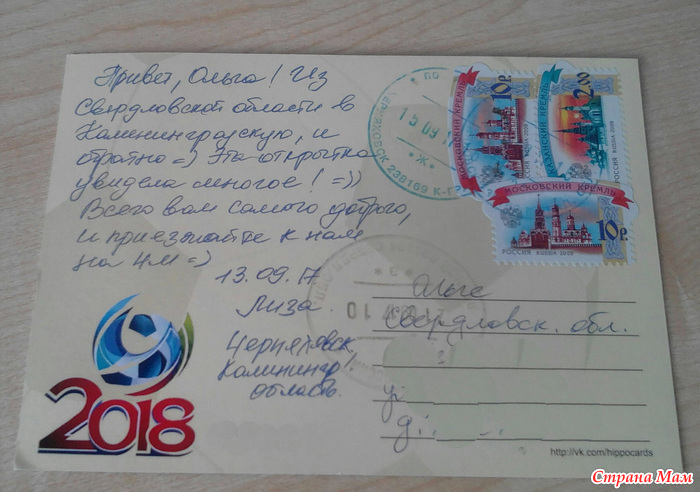 Привет, Ольга! Из
Свердловской области в
Калининградскую, и
обратно =) Эта открытка
увидела многое! =))
Всего вам самого доброго,
и приезжайте к нам
на ЧМ =)
13.09.17
Лиза.
Черняховск,
Калинингр.
область.
2018
МОСКОВСКИЙ КРЕМЛЬ
10р.
РОССИЯ RUSSIA 2009
КАЗАНСКИЙ КРЕМЛЬ
2.00
РОССИЯ RUSSIA 2009
МОСКОВСКИЙ КРЕМЛЬ
10р.
РОССИЯ RUSSIA 2009
Ольге
Свердловск. обл.
http://vk.com/hippocards
Страна Мам